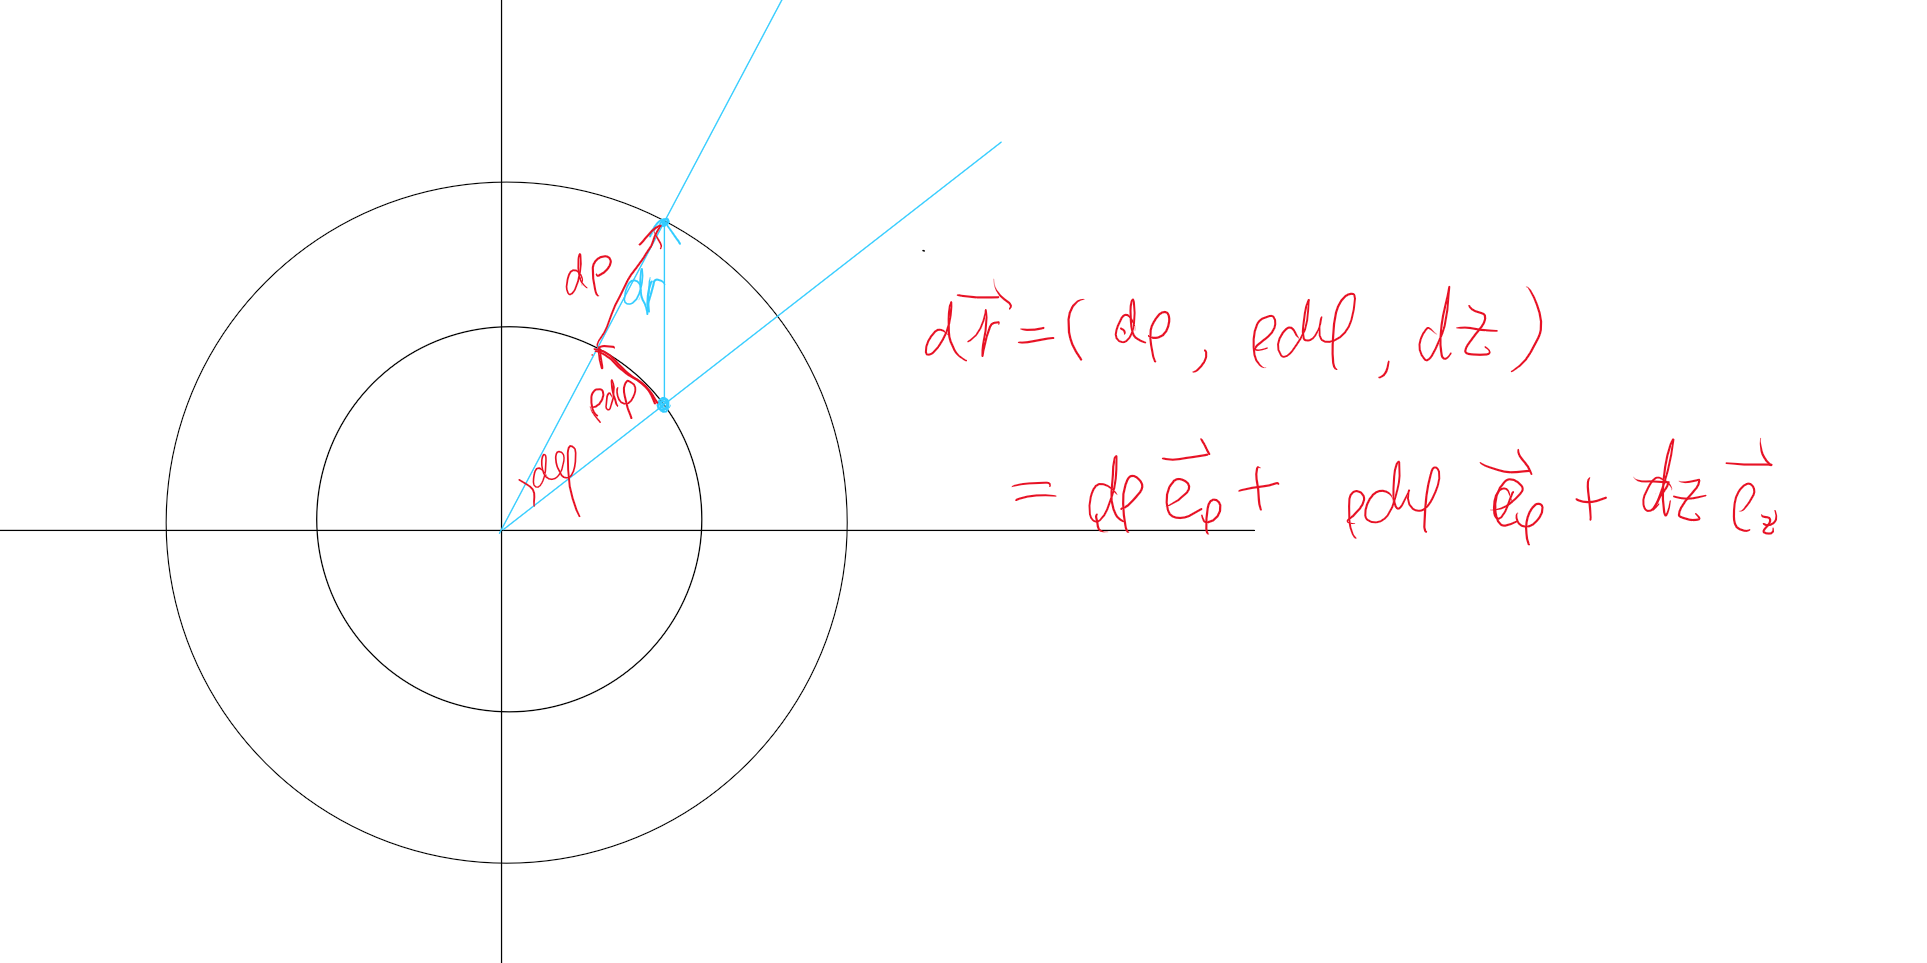 dρ
dr
ρdφ
dφ
d\vec{r} = ( dρ , ρdφ , dz )
= dρ \vec{e}_ρ + ρdφ \vec{e}_φ + dz \vec{e}_z